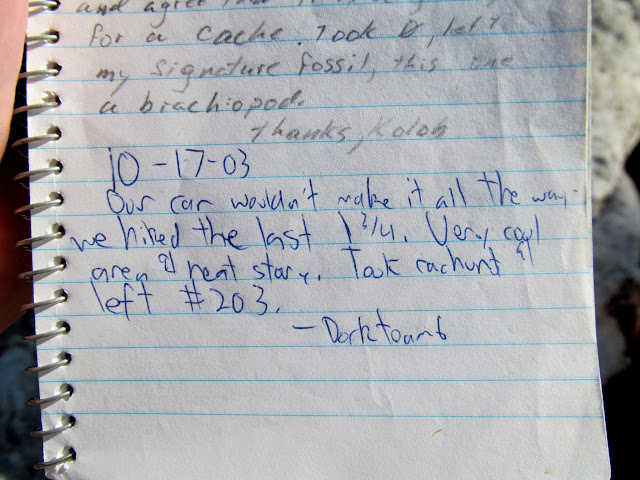 and agree that
for a cache. Took , left
my signature fossil, this one
a brachiopod.
Thanks, Kolob
10-17-03
Our car wouldn't make it all the way.
we hiked the last 1 3/4. Very cool
area & neat story. Took &
left #203.
- Dorktoamb